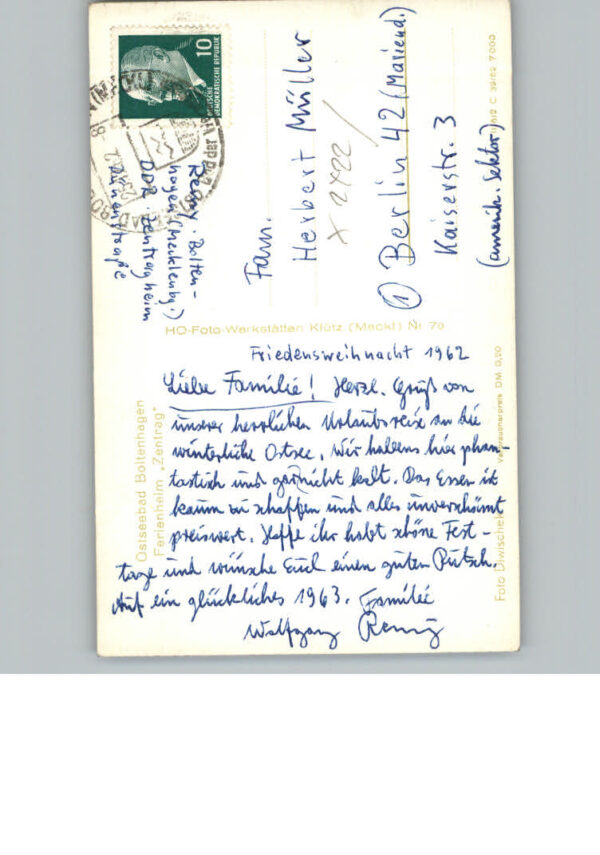 10
DEUTSCHE
DEMOKRATISCHE REPUBLIK
Bolten-
hagen (Mecklenbg.)
DDR Zentragheim
Dünenstraße
Fam.
Herbert Müller
X 2422 /
① Berlin 42 (Mariend.)
Kaiserstr. 3
(amerik. Sektor)
HO-Foto-Werkstätten Klütz (Meckl) Nr 79
Ostseebad Boltenhagen
Ferienheim „Zentrag"
Verbraucherpreis DM 0,20
Friedensweihnacht 1962
Liebe Familie! Herzl. Gruß von
unserer herrlichen Urlaubsreise an die
winterliche Ostsee. Wir habens hier phan-
tastisch und garnicht kalt. Das Essen ist
kaum zu schaffen und alles unverschämt
preiswert. Hoffe ihr habt schöne Fest-
tage und wünsche Euch einen guten Rutsch.
Auf ein glückliches 1963. Familie
Wolfgang